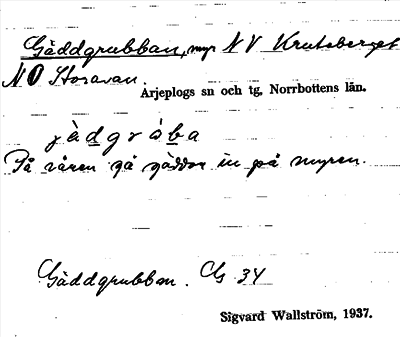 Gäddgrubban, myr NV Kruteberget
NO Storavan.
Arjeplogs sn och tg, Norrbottens län.
jädgråba
På våren gå gäddor in på myren.
Gäddgrubban. Cls 34
Sigvard Wallström, 1937.